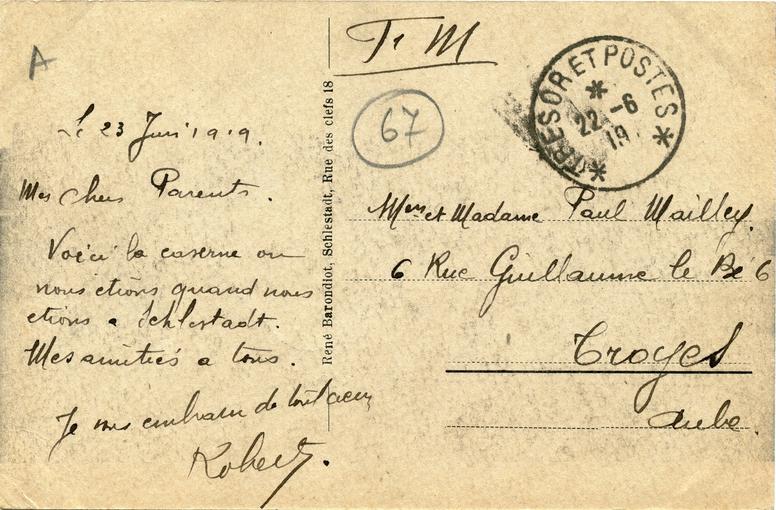 A
Le 23 Juin 1919.
Mes chers Parents.
Voici la caserne ou
nous etions quand nous
etions a Schlestadt.
Mes amitiés a tous.
Je vous embrasse de tout cœur
Robert.
René Barondiot, Schlestadt, Rue des clefs 18
F. M
67
TRESOR ET POSTES
22 - 6
19
Mme et Madame Paul Mailley.
6 Rue Guillaume le Bé 6
Troyes
Aube.